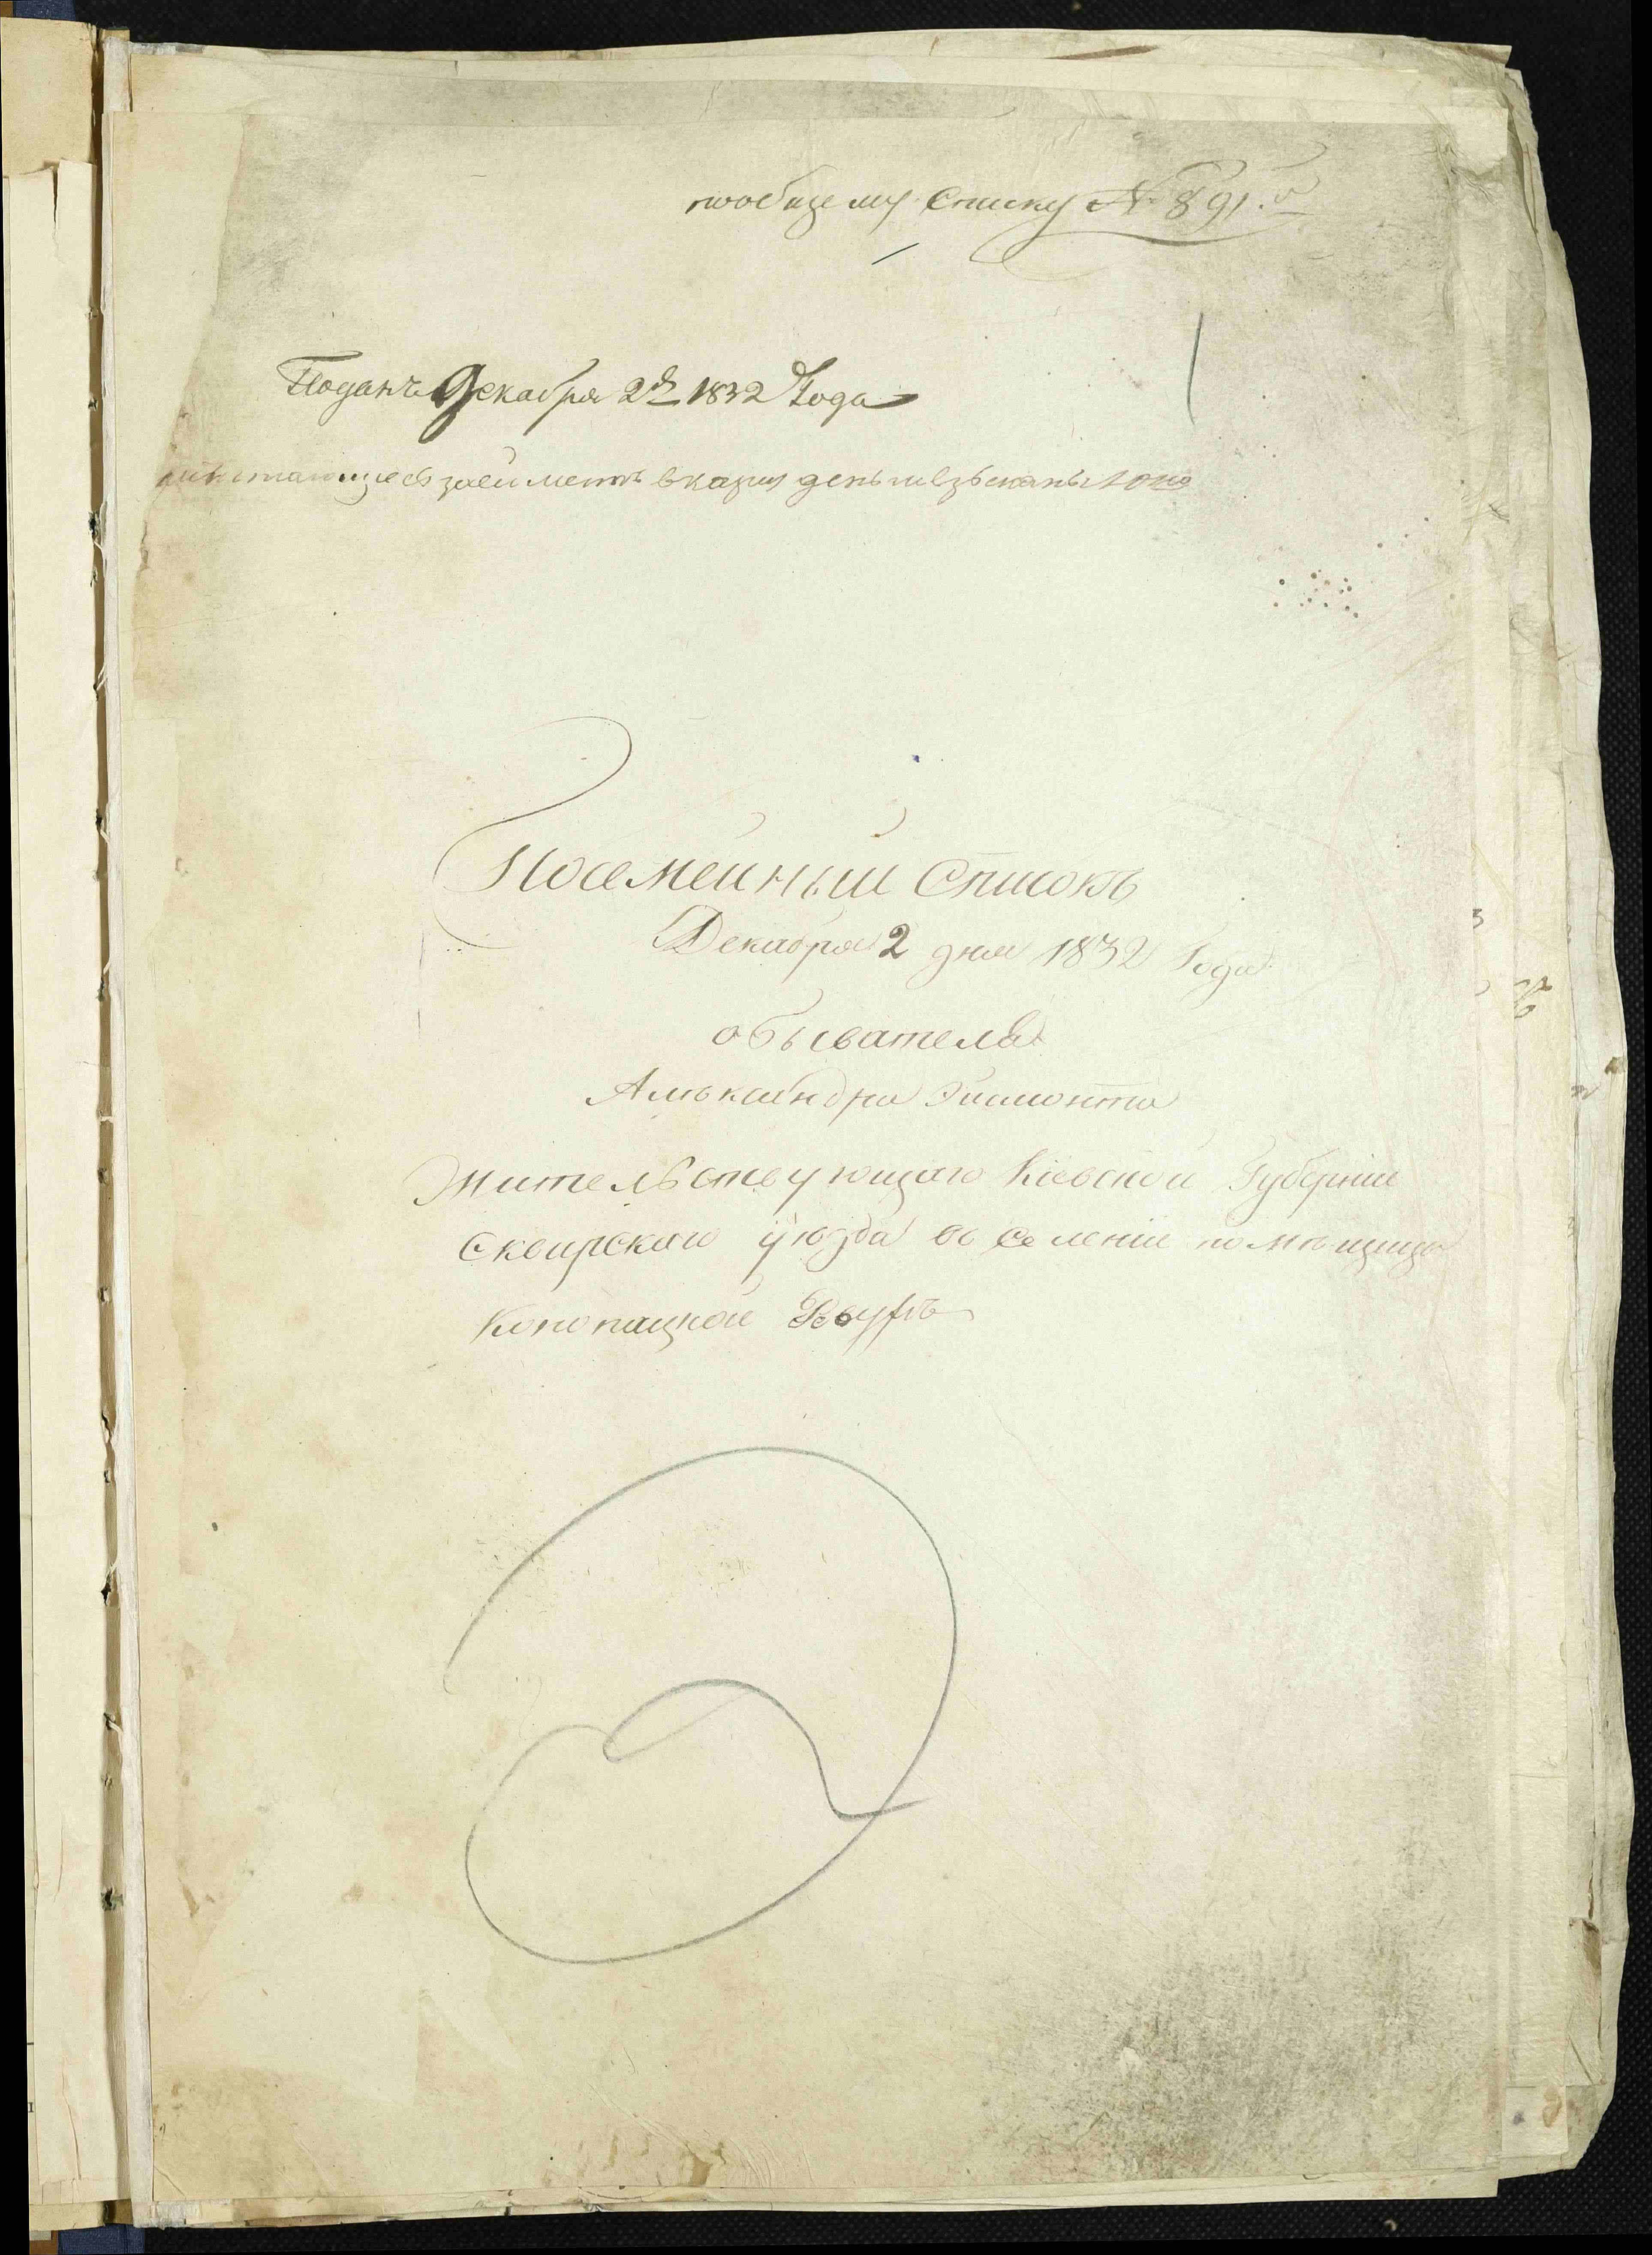 пообщему Списку № 891.й
Поданъ Декабря 2д 1832 Года
засей листъ вказну деньги взысканы
Посемейный Списокъ
Декабря 2 дня 1832 Года
обывателя
Алѣксандра
Жительствующаго Кіевской Губерніи
Сквирскаго уѣзда во Селеніи помѣщицы